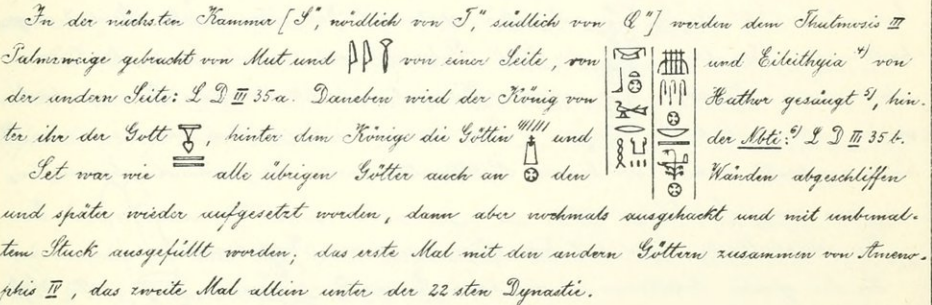 In der nächsten Kammer [S", nördlich von T," südlich von Q"] werden dem Thutmosis III
Palmzweige gebracht von Mut und 𓇋𓇋 von einer Seite, von und Eileithyia ⁴⁾ von
der andern Seite: L D III 35a. Daneben wird der König von Hathor gesäugt ⁵⁾, hin-
ter ihr der Gott , hinter dem Könige die Göttin und der Nbti: ⁶⁾ L D III 35 b.
Set war wie alle übrigen Götter auch an den Wänden abgeschliffen
und später wieder aufgesetzt worden, dann aber nochmals ausgehackt und mit unbemal-
tem Stuck ausgefüllt worden; das erste Mal mit den andern Göttern zusammen von Ameno-
phis IV, das zweite Mal allein unter der 22 sten Dynastie.